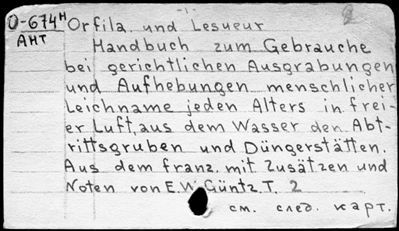 O-674H Orfila. und Lesueur
АНТ
Handbuch zum Gebrauche
bei gerichtlichen Ausgrabungen
und Aufhebungen menschlicher
Leichname jeden Alters in frei-
er Luft, aus dem Wasser den Abt-
rittsgruben und Düngerstätten.
Aus dem franz. mit Zusätzen und
Noten von E.W. Güntz. T. 2
см. след. карт.